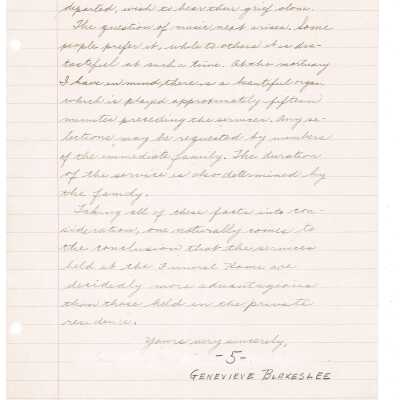 departed, wish to bear their grief alone.
The question of music next arises. Some
people prefer it, while to others it is dis-
tasteful at such a time. At the mortuary
I have in mind, there is a beautiful organ
which is played approximately fifteen
minutes preceding the services. Any se-
lections may be requested by members
of the immediate family. The duration
of the service is also determined by
the family.
Taking all of these facts into con-
sideration, one naturally comes to
the conclusion that the services
held at the Funeral Home are
decidedly more advantageous
than those held in the private
residence.
Yours very sincerely,
-5-
GENEVIEVE BLAKESLEE